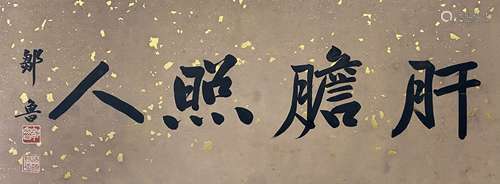 肝膽照人
鄒魯